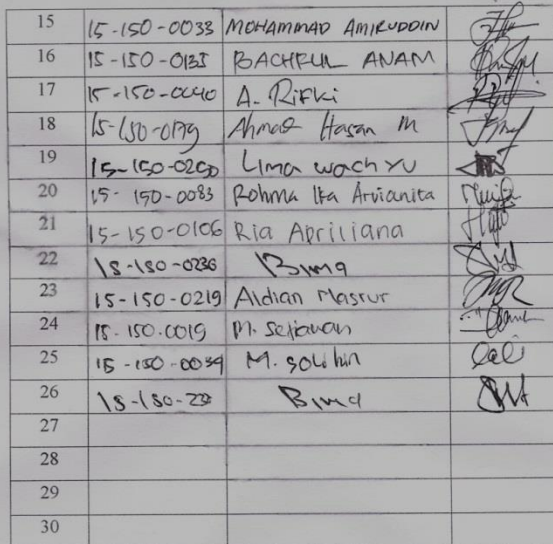 15 15-150-0033 MOHAMMAD AMIRUDDIN
16 15-150-0135 BACHRUL ANAM
17 15-150-0040 A. RiFki
18 15-150-0179 Ahmad Hasan M
19 15-150-0250 Lima wachyu
20 15-150-0083 Rohma Ika Arvianita
21 15-150-0106 Ria Apriliana
22 15-150-0236 Bima
23 15-150-0219 Aldian Masrur
24 15.150.0019 M. Setiawan
25 15-150-0039 M. Solihin
26 15-150-236 Bima
27
28
29
30